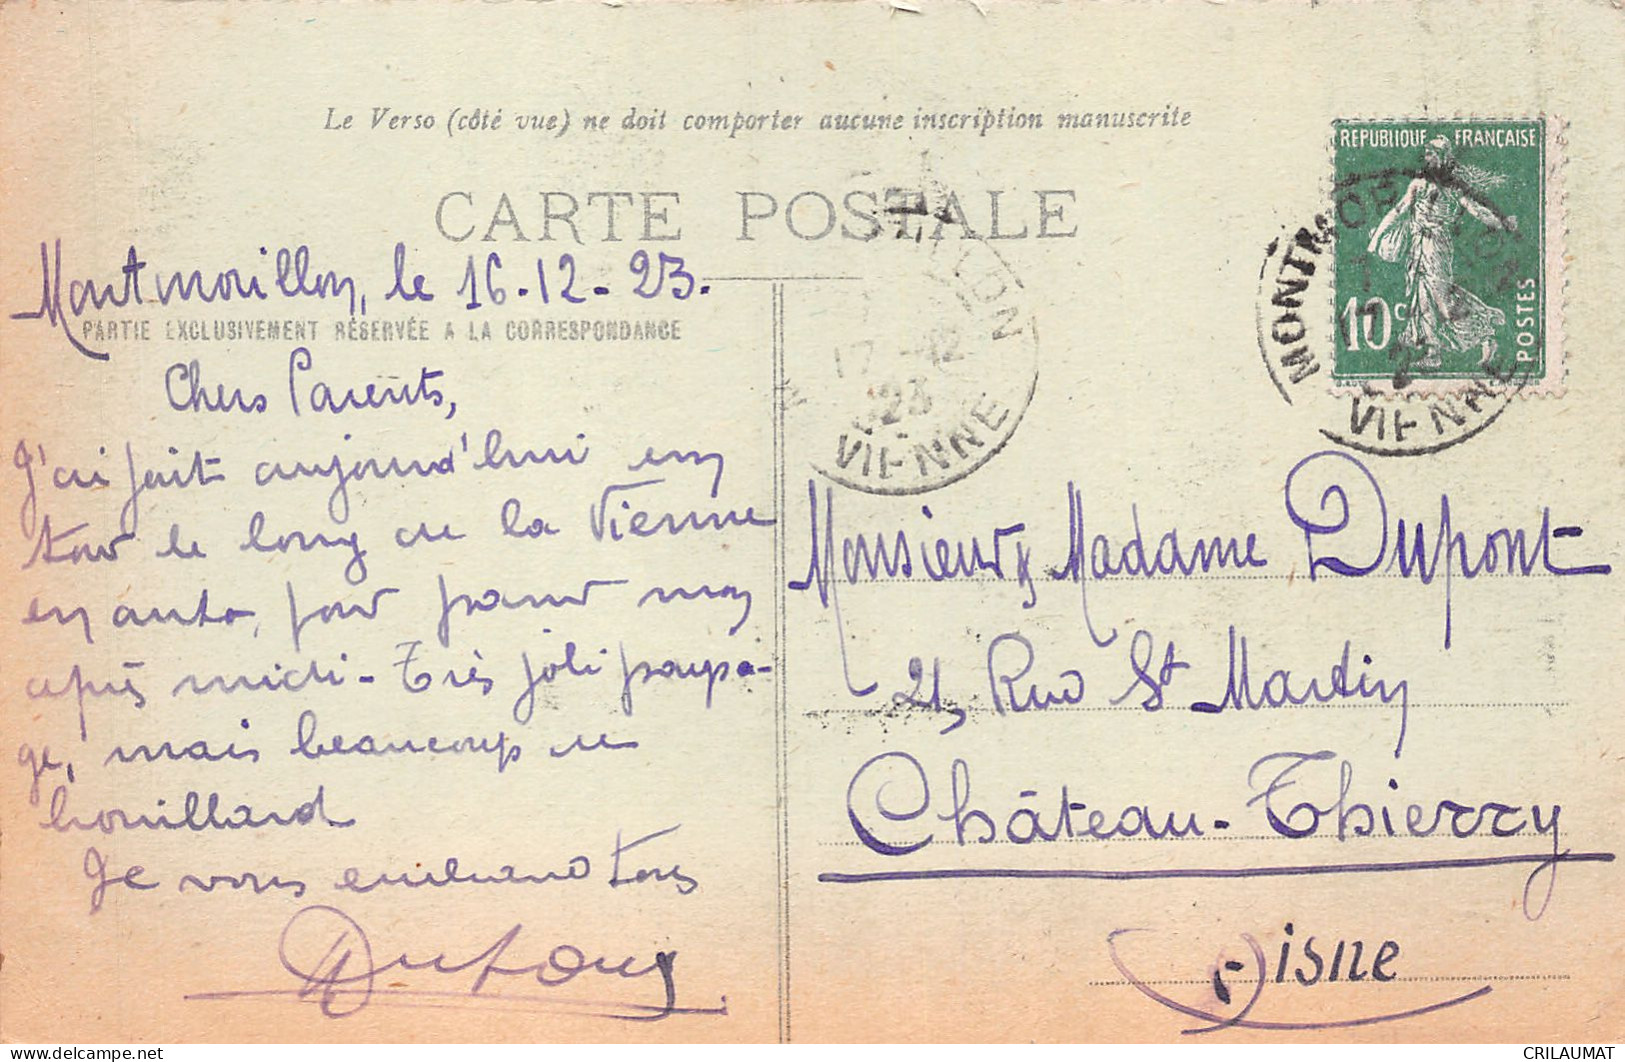 Le Verso (côté vue) ne doit comporter aucune inscription manuscrite
CARTE POSTALE
Montmorillon, le 16-12-23.
PARTIE EXCLUSIVEMENT RÉSERVÉE A LA CORRESPONDANCE
Chers Parents,
J'ai fait aujourd'hui un
tour le long de la Vienne
en auto, pour passer mon
après midi - Très joli paysa-
ge, mais beaucoup de
brouillard
Je vous embrasse tous
REPUBLIQUE FRANÇAISE
10c
POSTES
MONTMORILLON
17-12
23
VIENNE
MONTMORILLON
17 12
23
VIENNE
Monsieur & Madame Dupont
21, Rue St Martin
Château-Thierry
Aisne
CRILAUMAT